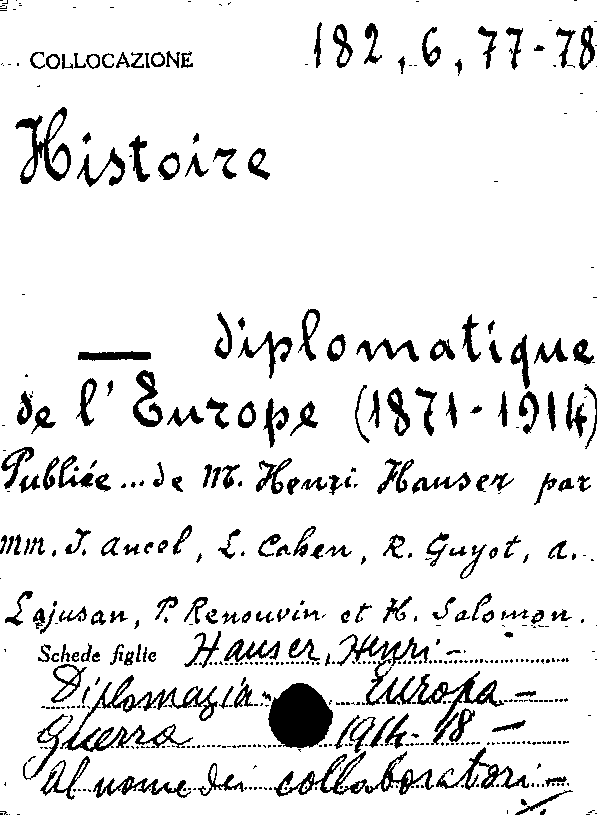 COLLOCAZIONE 182, 6, 77-78
Histoire
— diplomatique
de l'Europe (1871-1914)
Publiée... de M. Henri Hauser par
MM. J. Ancel, L. Cahen, R. Guyot, A.
Lajusan, P. Renouvin et H. Salomon.
Schede figlie Hauser, Henri -
Diplomazia - Europa -
Guerra 1914-18 -
Al nome dei collaboratori -